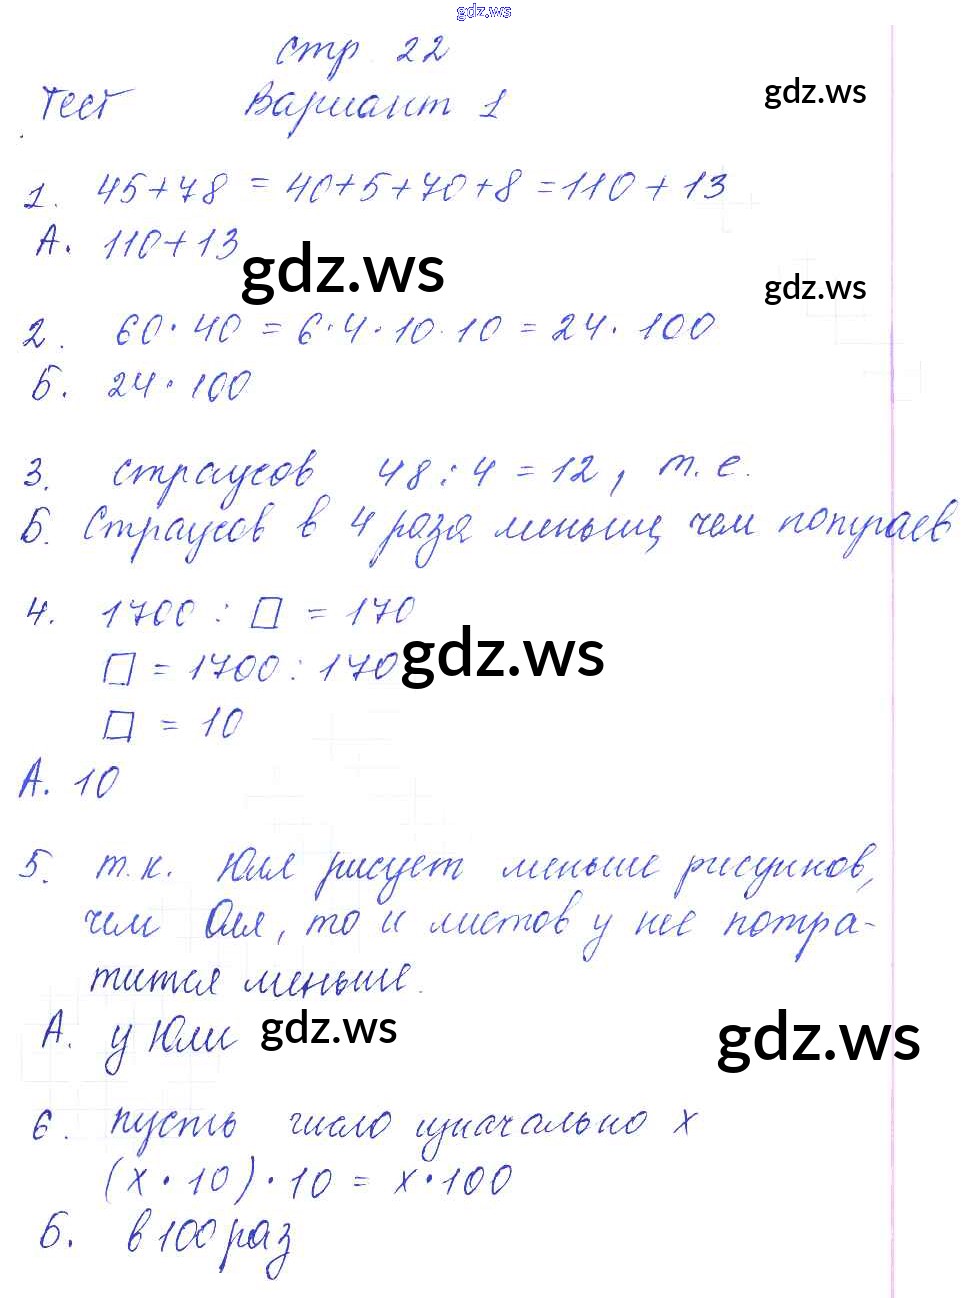 gdz.ws
стр 22
Тест Вариант 1
gdz.ws
1. 45+78 = 40+5+70+8=110+13
А. 110+13
gdz.ws
gdz.ws
2. 60·40 = 6·4·10·10 = 24·100
Б. 24·100
3. страусов 48:4=12, т.е.
Б. Страусов в 4 раза меньше, чем попугаев
4. 1700 : □ = 170
□ = 1700 : 170
gdz.ws
□ = 10
А. 10
5. т.к. Юля рисует меньше рисунков,
чем Оля, то и листов у нее потра-
тится меньше.
А. у Юли
gdz.ws
gdz.ws
6. пусть число изначально х
(х·10)·10 = х·100
Б. в 100 раз